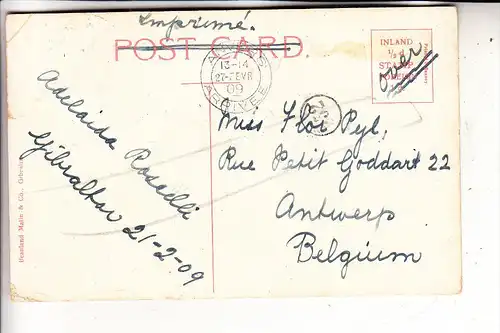 Imprimé.
POST CARD.
INLAND
½d
STAMP
over
13-14
27 FEVR
09
ARRIVEE
Adelaida
Gibraltar
21-2-09
Miss Flor Pyl,
Rue Petit Goddart 22
Antwerp
Belgium
Beanland Malin & Co., Gibraltar